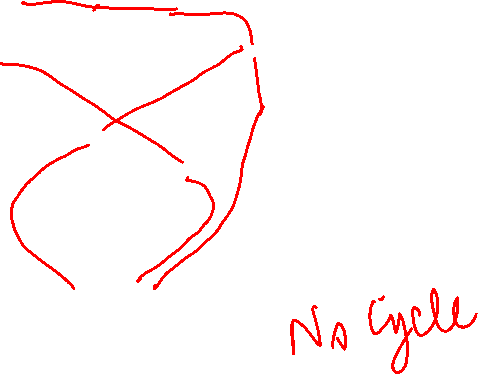 No Cycle